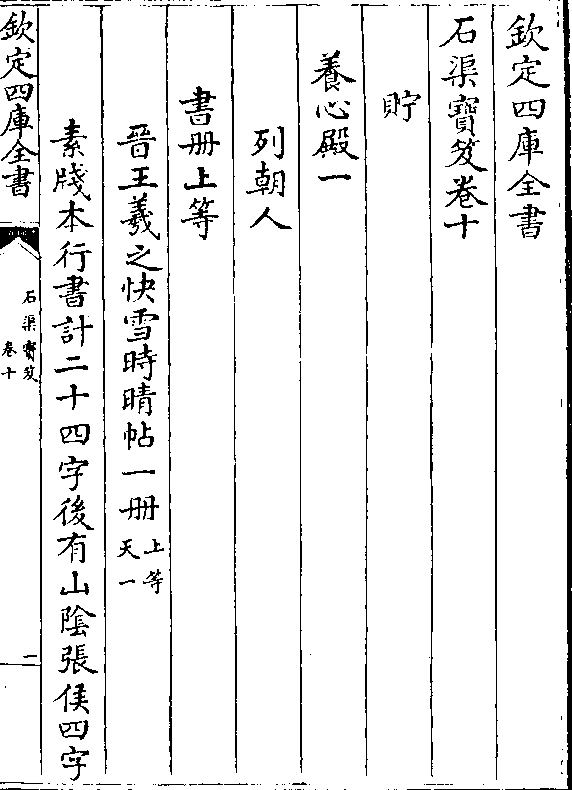 欽定四庫全書
石渠寶笈卷十
貯
養心殿一
列朝人
書册上等
晉王羲之快雪時晴帖一册上等天一
素牋本行書計二十四字後有山陰張侯四字
欽定四庫全書
石渠寶笈
卷十
一